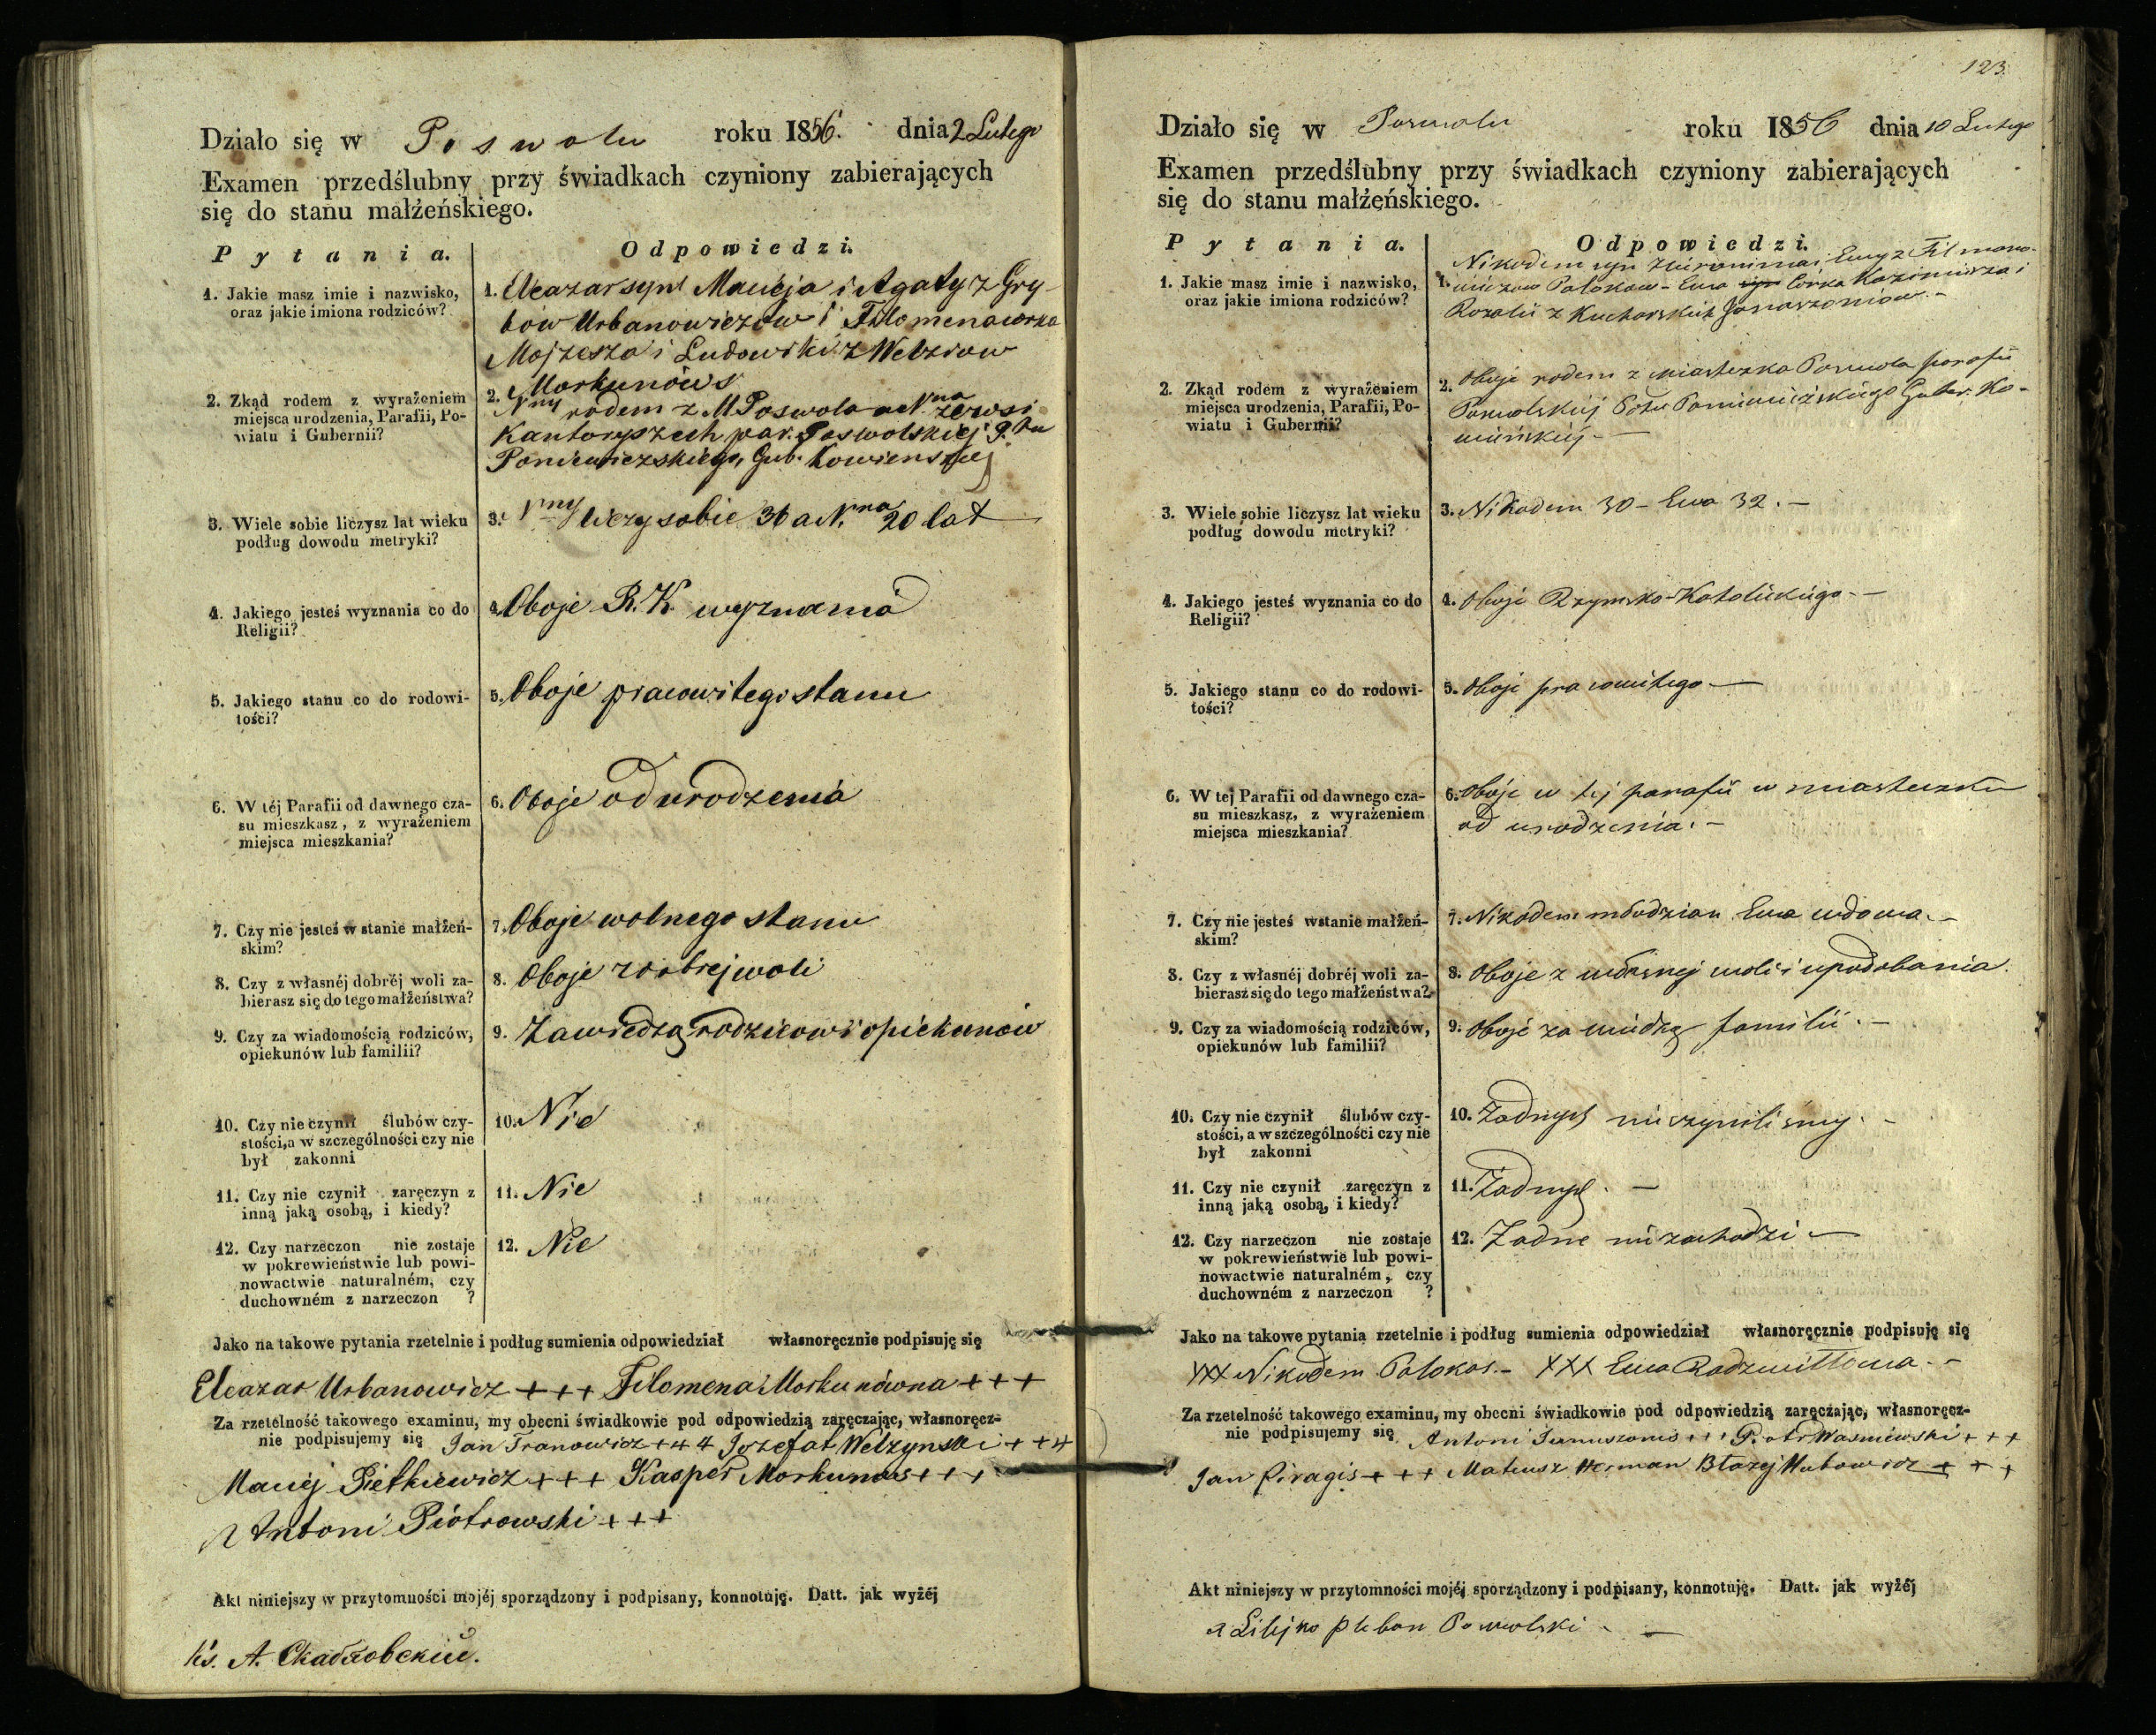 Działo się w Poswolu roku 1856. dnia 2 Lutego
Examen przedślubny przy świadkach czyniony zabierających
się do stanu małżeńskiego.
Pytania. Odpowiedzi.
1. Jakie masz imie i nazwisko,
oraz jakie imiona rodziców?
1. Eleazar syn Macieja i Agaty z Gry-
bów Urbanowiczów i Filomena corka
Mojzesza i Ludowiki z Welzow
Morkunów
2. Zkąd rodem z wyrażeniem
miejsca urodzenia, Parafii, Po-
wiatu i Gubernii?
2. Nny rodem z M. Poswola a Nna ze wsi
Kantoryszech par. Poswolskiej P.tu
Poniewiezskiego, Gub. Kowienskiej
3. Wiele sobie liczysz lat wieku
podług dowodu metryki?
3. Nny liczy sobie 30 a N.na 20 lat
4. Jakiego jesteś wyznania co do
Religii?
4. Oboje R. K. wyznania
5. Jakiego stanu co do rodowi-
tości?
5. Oboje pracowitego stanu
6. W téj Parafii od dawnego cza-
su mieszkasz, z wyrażeniem
miejsca mieszkania?
6. Oboje od urodzenia
7. Czy nie jesteś w stanie małżeń-
skim?
7. Oboje wolnego stanu
8. Czy z własnéj dobréj woli za-
bierasz się do tego małżeństwa?
8. Oboje z dobrej woli
9. Czy za wiadomością rodziców,
opiekunów lub familii?
9. Za wiedzą rodzicow i opiekunow
10. Czy nie czynił ślubów czy-
stości, a w szczególności czy nie
był zakonni
10. Nie
11. Czy nie czynił zaręczyn z
inną jaką osobą, i kiedy?
11. Nie
12. Czy narzeczon nie zostaje
w pokrewieństwie lub powi-
nowactwie naturalném, czy
duchowném z narzeczon ?
12. Nie
Jako na takowe pytania rzetelnie i podług sumienia odpowiedział własnoręcznie podpisuję się
Eleazar Urbanowicz +++ Filomena Morkunówna +++
Za rzetelność takowego examinu, my obecni świadkowie pod odpowiedzią zaręczając, własnoręcz-
nie podpisujemy się Jan Franowicz +++ Jozefat Welzynski +++
Maciej Pietkiewicz +++ Kasper Morkunas +++
Antoni Piotrowski +++
Akt niniejszy w przytomności mojéj sporządzony i podpisany, konnotuję. Datt. jak wyżéj
123.
Działo się w Poswolu roku 1856 dnia 10 Lutego
Examen przedślubny przy świadkach czyniony zabierających
się do stanu małżeńskiego.
Pytania. Odpowiedzi.
1. Jakie masz imie i nazwisko,
oraz jakie imiona rodziców?
1. Nikodem syn Hieronima i Ewy z Filmono-
wiczow Polokow - Ewa syn Córka Kazimierza i
Rozalii z Kucharskich Januszoniow. -
2. Zkąd rodem z wyrażeniem
miejsca urodzenia, Parafii, Po-
wiatu i Gubernii?
2. Oboje rodem z miasteczka Poswola parafii
Poswolskiéj Pottu Poniewieżskiego Guber. Ko-
wieńskiéj -
3. Wiele sobie liczysz lat wieku
podług dowodu metryki?
3. Nikodem 30 - Ewa 32. -
4. Jakiego jesteś wyznania co do
Religii?
4. Oboje Rzymsko-Katolickiego. -
5. Jakiego stanu co do rodowi-
tości?
5. Oboje pracowitego -
6. W tej Parafii od dawnego cza-
su mieszkasz, z wyrażeniem
miejsca mieszkania?
6. Oboje w tej parafii w miasteczku
od urodzenia. -
7. Czy nie jesteś w stanie małżeń-
skim?
7. Nikodem młodzian Ewa wdowa. -
8. Czy z własnéj dobréj woli za-
bierasz się do tego małżeństwa?
8. Oboje z własnej woli i upodobania.
9. Czy za wiadomością rodziców,
opiekunów lub familii?
9. Oboje za wiedzą familii. -
10. Czy nie czynił ślubów czy-
stości, a w szczególności czy nie
był zakonni
10. Żadnych nie czynilismy. -
11. Czy nie czynił zaręczyn z
inną jaką osobą, i kiedy?
11. Żadnych. -
12. Czy narzeczon nie zostaje
w pokrewieństwie lub powi-
nowactwie naturalném, czy
duchowném z narzeczon ?
12. Żadne nie zachodzi -
Jako na takowe pytania rzetelnie i podług sumienia odpowiedział własnoręcznie podpisuję się
XXX Nikodem Polokas. - XXX Ewa Radziwiłłowa. -
Za rzetelność takowego examinu, my obecni świadkowie pod odpowiedzią zaręczając, własnoręcz-
nie podpisujemy się Antoni Januszonis +++ Piotr Wasniewski +++
Jan Piragis +++ Mateusz Herman Błażej Wutowicz +++
Akt niniejszy w przytomności mojéj sporządzony i podpisany, konnotuję. Datt. jak wyżéj
Pleban Poswolski -